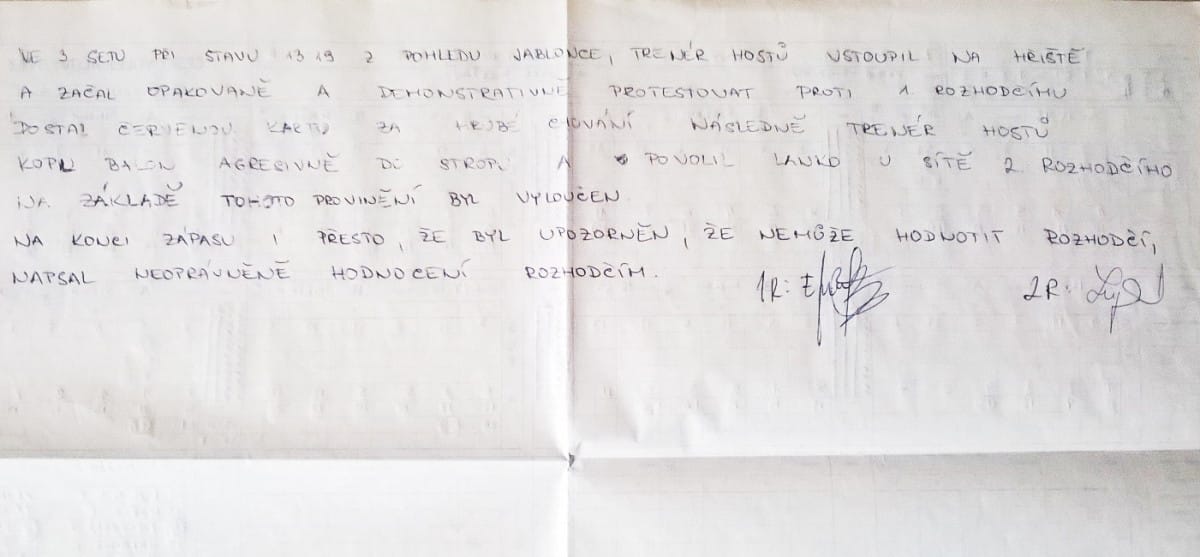 VE 3 SETU PŘI STAVU 13 19 Z POHLEDU JABLONCE, TRENÉR HOSTŮ VSTOUPIL NA HŘIŠTĚ
A ZAČAL OPAKOVANĚ A DEMONSTRATIVNĚ PROTESTOVAT PROTI 1 ROZHODČÍMU
DOSTAL ČERVENOU KARTU ZA HRUBÉ CHOVÁNÍ NÁSLEDNĚ TRENÉR HOSTŮ
KOPL BALON AGRESIVNĚ DO STROPU A POVOLIL LANKO U SÍTĚ 2. ROZHODČÍHO
NA ZÁKLADĚ TOHOTO PROVINĚNÍ BYL VYLOUČEN
NA KONCI ZÁPASU I PŘESTO, ŽE BYL UPOZORNĚN, ŽE NEMŮŽE HODNOTIT ROZHODČÍ,
NAPSAL NEOPRÁVNĚNĚ HODNOCENÍ ROZHODČÍM.
1R: 2R: